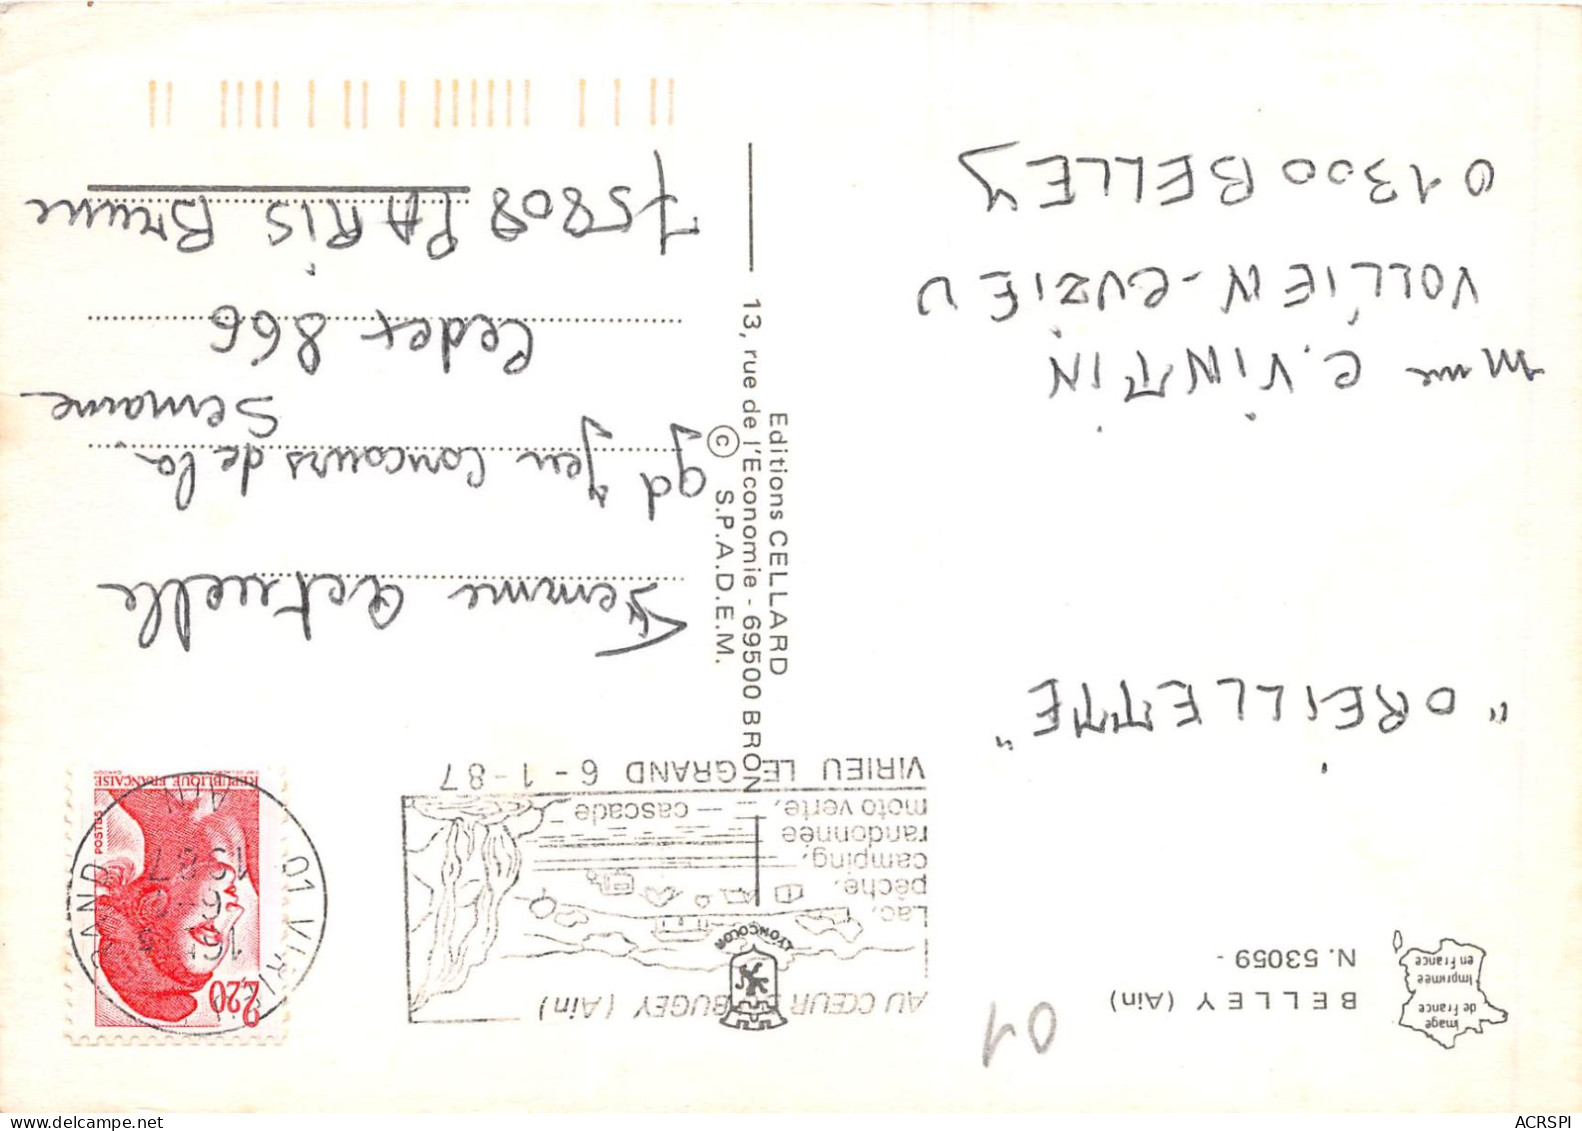 Image
de France
Imprimée
en France
BELLEY (Ain)
N. 53059 -
01
"OREILLETTE"
Mme C. VINTIN
VOLLIEN-CUZIEU
01300 BELLEY
LYONCOLOR
Editions CELLARD
13, rue de l'Economie - 69500 BRON
© S.P.A.D.E.M.
AU CŒUR BUGEY (Ain)
Lac,
pêche,
camping,
randonnée
moto verte,
cascade
VIRIEU LE GRAND 6-1-87
2,20
POSTES
REPUBLIQUE FRANÇAISE
01 VIRIEU
GRAND
AIN
Femme Actuelle
gd Jeu Concours de la
Semaine
Cedex 866
75808 PARIS Brune
ACRSPI